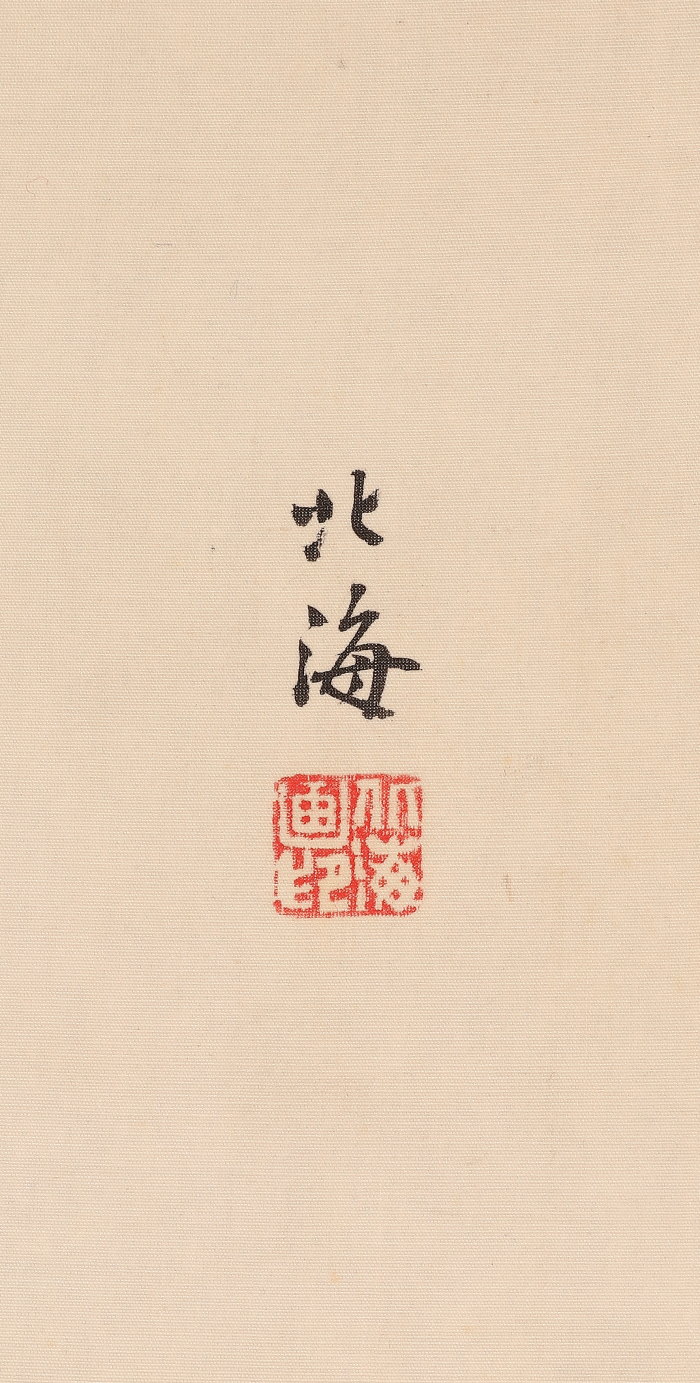 北海
北海
画印